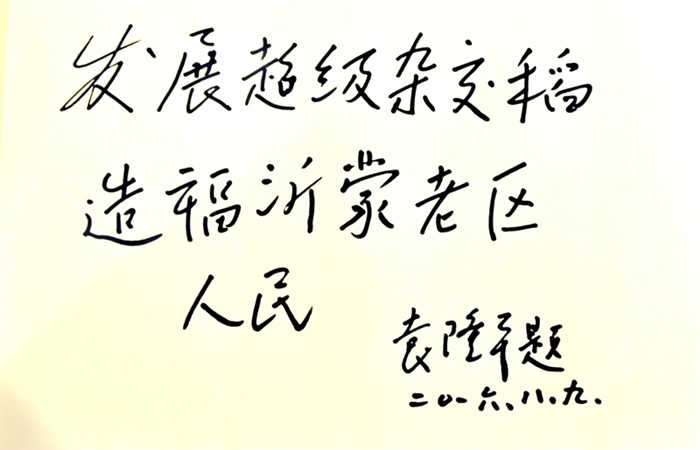 发展超级杂交稻
造福沂蒙老区
人民
袁隆平题
二〇一六、八、九、